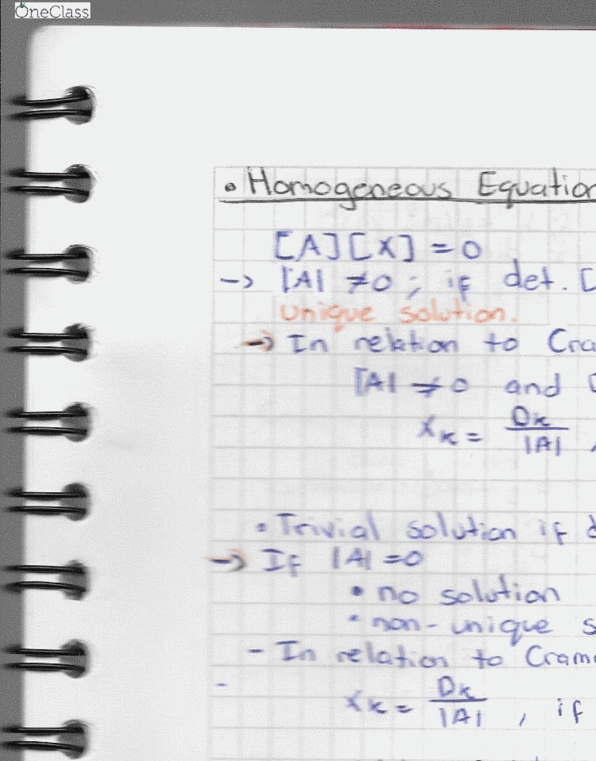 OneClass
• Homogeneous Equation
[A][X] = 0
-> |A| ≠ 0 ; if det. [
unique solution.
-> In relation to Cra
|A| ≠ 0 and
Xk = Dk/|A| ,
• Trivial solution if d
-> If |A| = 0
• no solution
• non-unique s
- In relation to Cram
- 
Xk = Dk/|A| , if